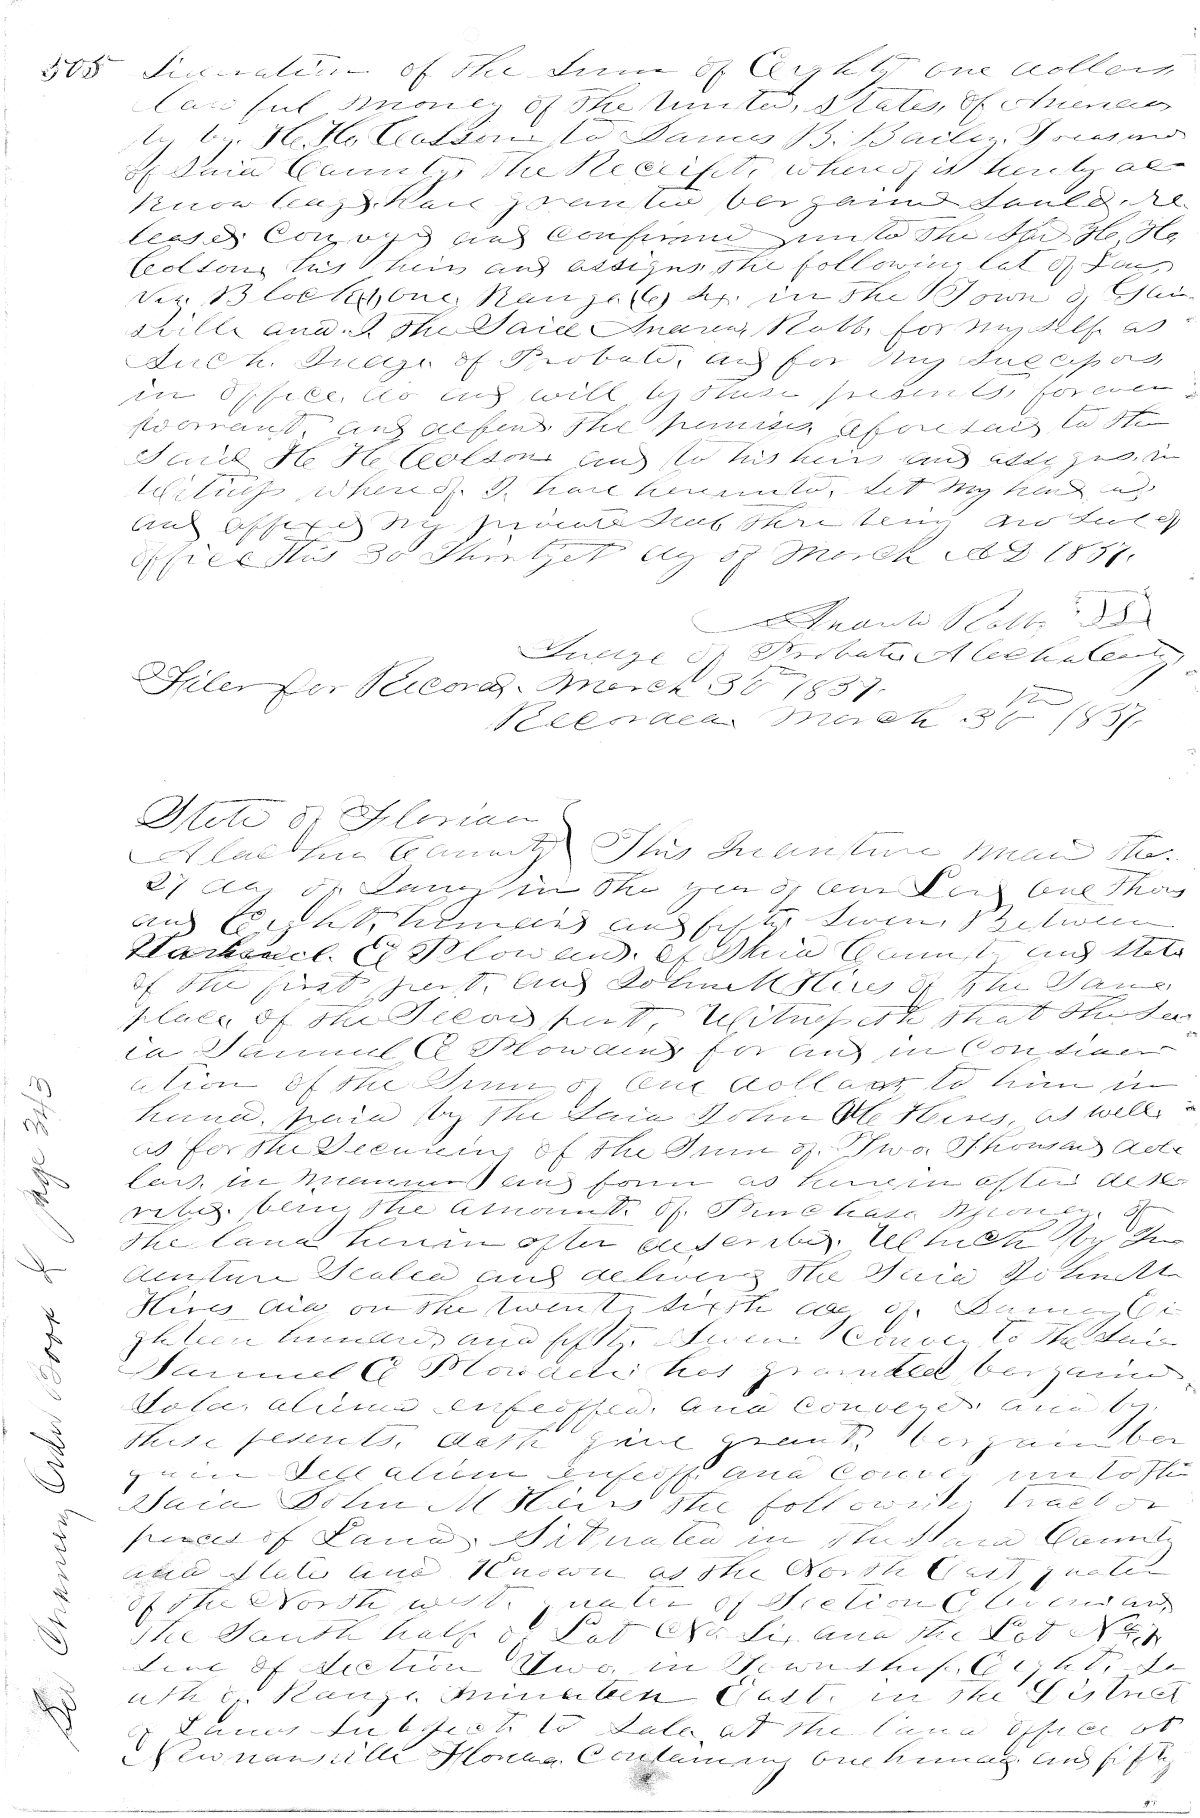 505 sideration of the Sum of Eighty one dollars
lawful money of the United States of America
by H. H. Colson to James B. Bailey Treasurer
of Said County, the Receipt where of is hereby ac
knowledged have granted bargained Sould. re
leased Conveyed and Confirmed unto the Sd. H. H.
Colson, his heirs and assigns the following lot of Land
Block (1) one, Range (6) Six. in the Town of Gain
sville and I the Said Robb. for my self as
Such. Judge of Probate, and for my Sucessors
in office, do and will by these presents, forever
worrant, and defend the premises afore said to the
Said H. H. Colson and to his heirs and assigns. in
Witness where of I have hereunto, Set my hand
and affixed my private Seal there being no Seal of
office this 30 day of March AD 1857.
Robb
Judge of Probate Alachua County
Filed for Record. March 30th 1857.
Recorded March 30th 1857.
State of Florida
Alachua County This Indenture made the
27 day of Jany in the year of our Lord One Thous
and Eight hundred and fifty Seven Between
C Plowden. of Said County and State
of the first part, and John M Hires of the Same
place of the Second part, Witnesseth that the Sa
id Samuel C Plowden for and in Consider
ation of the Sum of One dollar to him in
hand paid by the Said John M Hires, as well
as for the Securing of the Sum of Two Thousand dol
lars, in manner and form as herein after desc
ribed being the amount of Purchase Money of
the land herein after described Which by In
denture Sealed and delivered the Said John M
Hires did on the twenty sixth day of January Ei
ghteen hundred and fifty Seven Convey to the Said
Samuel C Plowden has granted bargained
Sold, aliened enfeoffed. and conveyed and by
these presents, doth give grant, bargain ber
gain Sell alien enfeoff and Convey unto the
Said John M Hires the following tract or
peices of Land, Situated in the Said County
and State and Known as the North East quater
of the North west, quater of Section Eleven and
the South half of Lot No. Six and the Lot No
of Section Two in Township Eight, So
uth of Range nineteen East. in the District
of Lands Subject to Sale at the land office at
Newnansville Florida Containing one hundred and fifty
See Chancery Order Book page 343